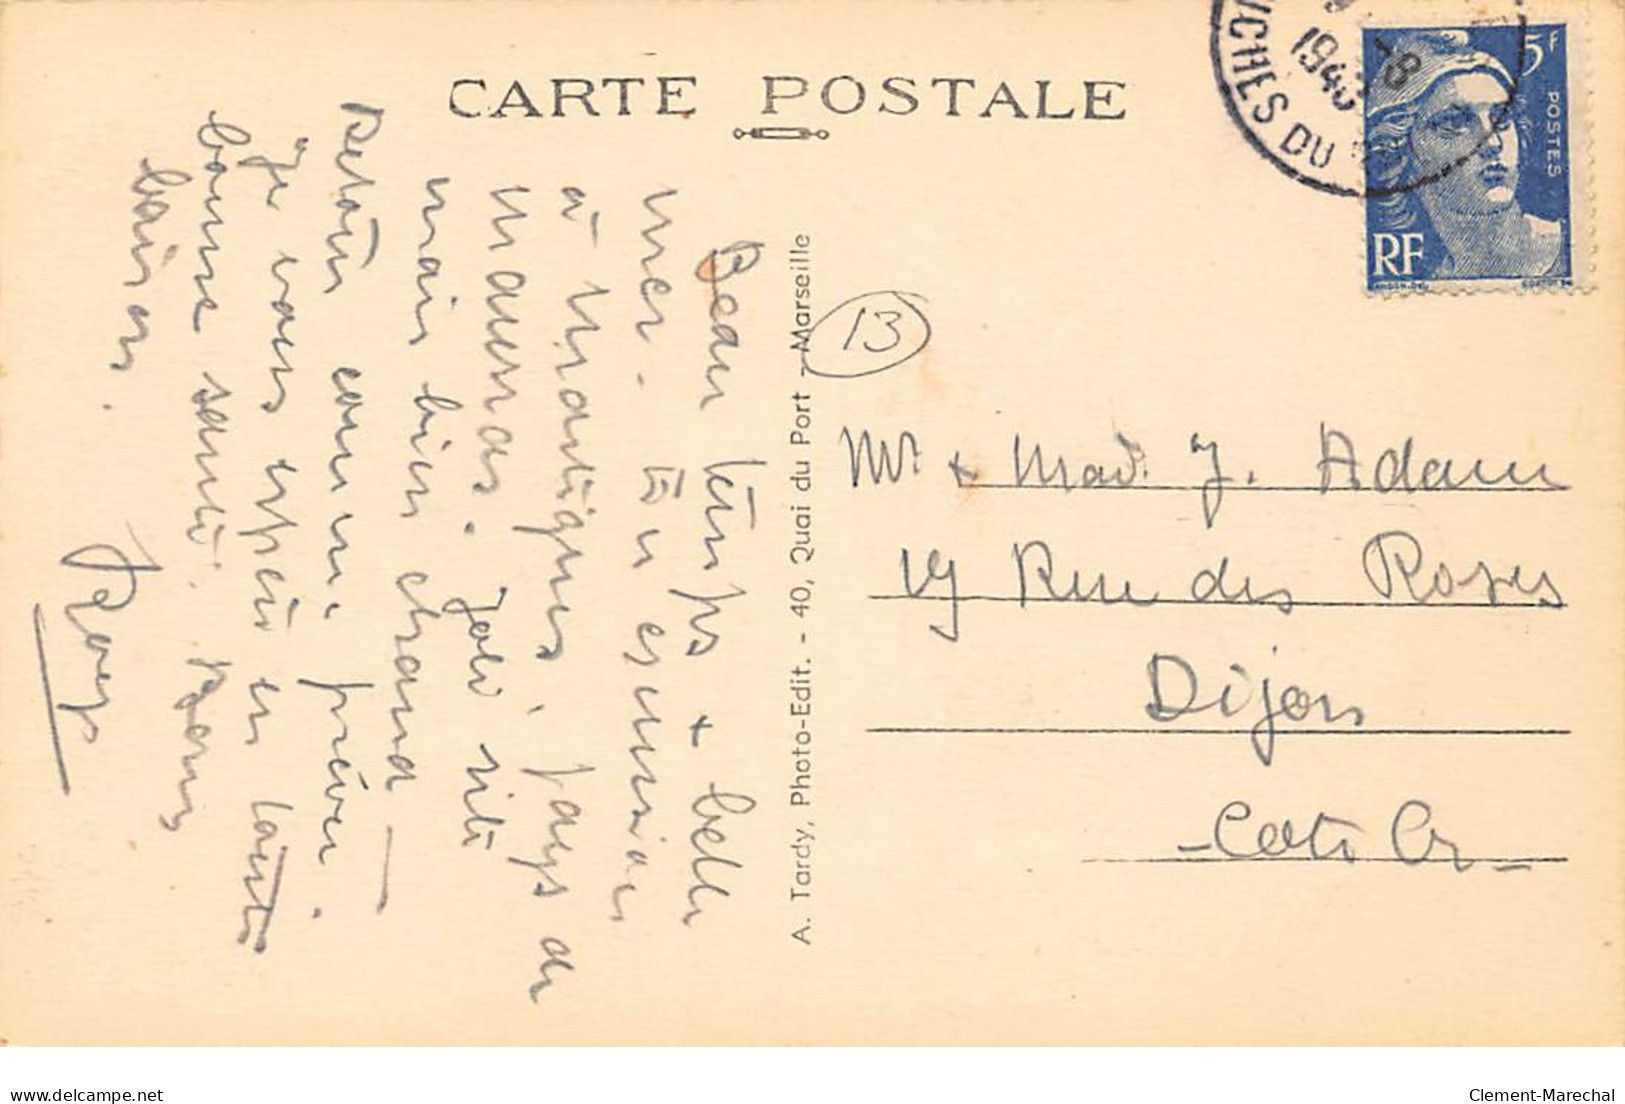 CARTE POSTALE
Beau temps + belle
mer - En excursion
à Martigues, pays de
Maurras. Joli site
mais bien chaud -
Retour comme prévu.
Je vous espère en toute
bonne santé. Bons
baisers.
A. Tardy, Photo-Edit. - 40, Quai du Port - Marseille
13
CHES DU
194
18
5F
POSTES
RF
Mr + Mad. J. Adam
19 Rue des Roses
Dijon
- Cote Or -
www.delcampe.net
Clement-Marechal